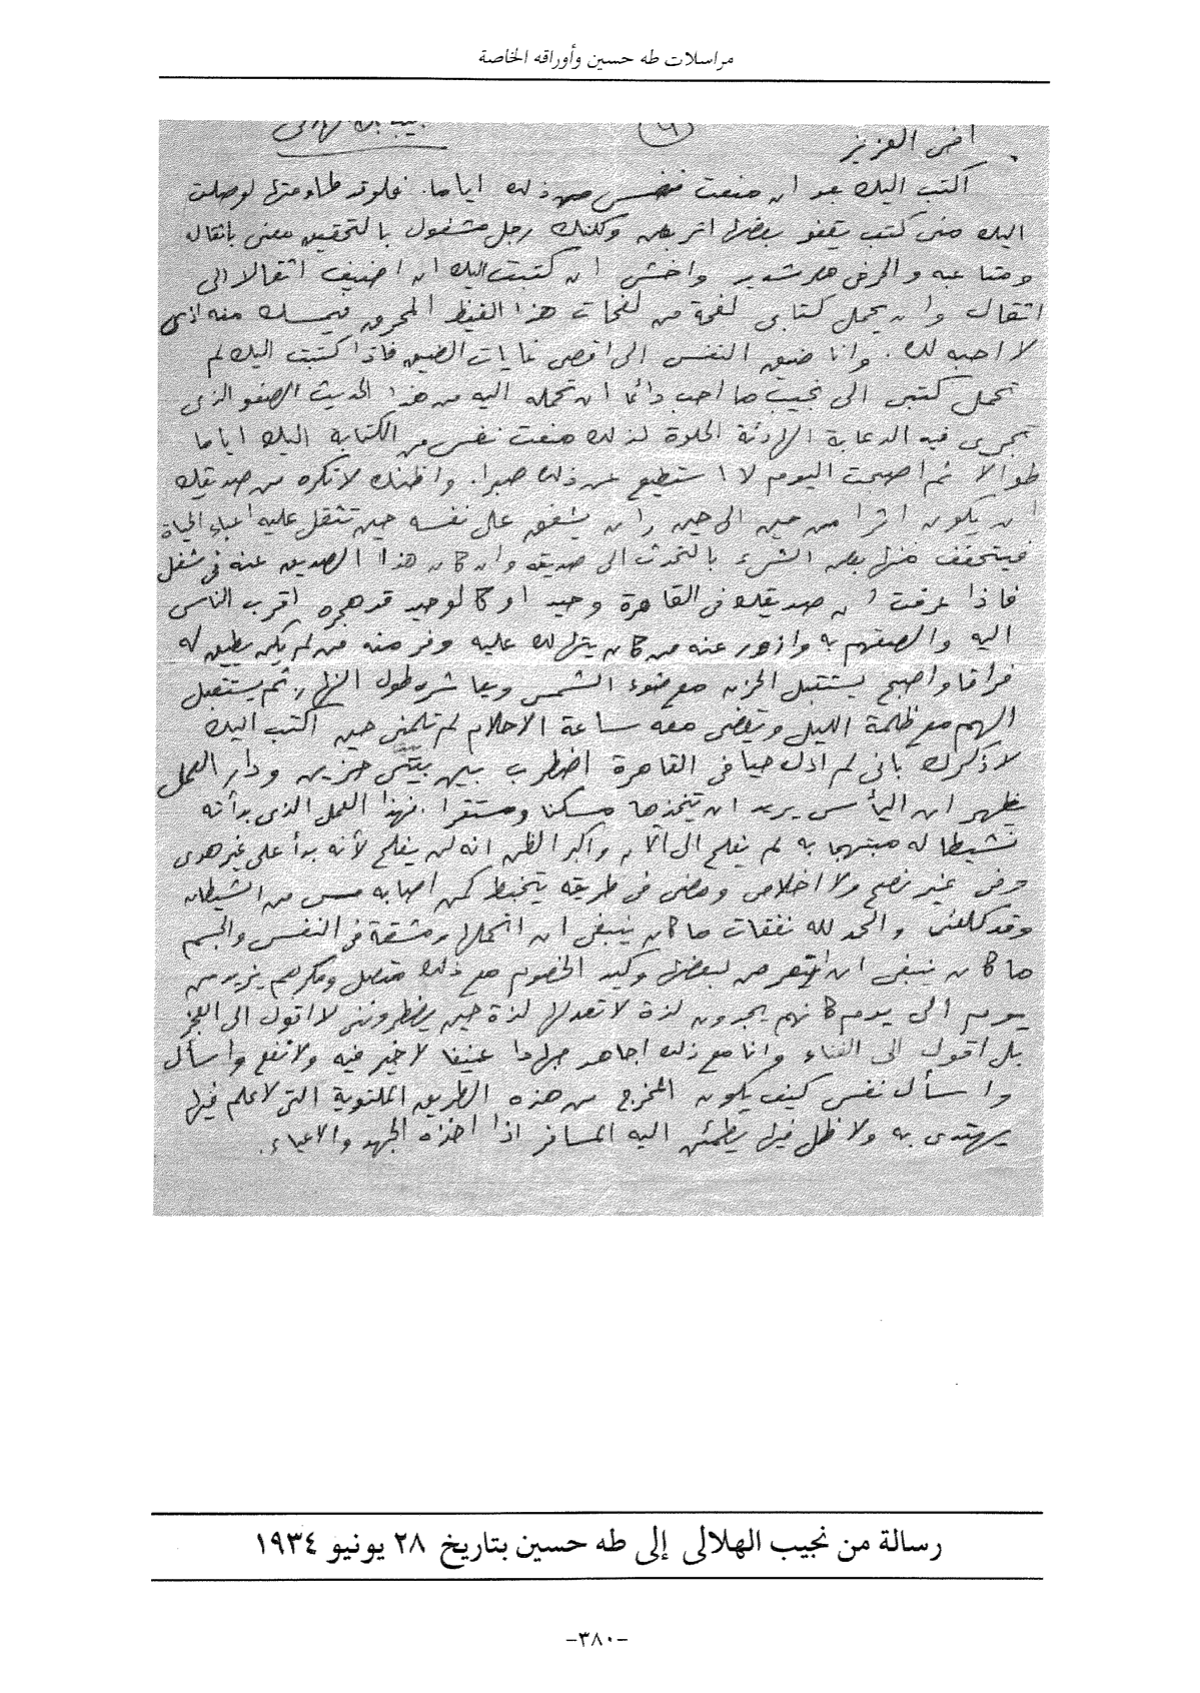 مراسلات طه حسين وأوراقه الخاصة
اخى العزيز
اكتب اليك بعد ان منعت نفسى من ذلك اياما. فلو قد طاوعتها لوصلت
اليك منى كتب يقفو بعضها اثر بعض ولكنك رجل مشغول بالتحقيق معنى باثقاله
ومتاعبه والحر فى مصر شديد واخشى ان كتبت اليك ان اضيف اثقالا الى
اثقال وان يحمل كتابى لفحة من لفحات هذا القيظ المحرق فيمسك منه اذى
لا احبه لك. وانا ضيق النفس الى اقصى غايات الضيق فاذا كتبت اليك لم
تحمل كتبى الى نجيب ما احب دائما ان تحمله اليه من هذا الحديث الصفو الذى
تجرى فيه الدعابة الهادئة الحلوة لذلك منعت نفسى من الكتابة اليك اياما
طوالا ثم اصبحت اليوم لا استطيع عن ذلك صبرا. واظنك لا تكره من صديقك
ان يكون اثرا من حين الى حين وان يشفق على نفسه حين تثقل عليه اعباء الحياة
فيتخفف منها بعض الشىء بالتحدث الى صديقه وان كان هذا الصديق عنه فى شغل
فاذا عرفت ان صديقك فى القاهرة وحيد او كالوحيد قد هجره اقرب الناس
اليه والصقهم به وازور عنه من كان يتهالك عليه وفر منه من لم يكن يطيق له
فراقا واصبح يستقبل الحزن مع ضوء الشمس ويعاشره طول النهار ثم يستقبل
الهم مع ظلمة الليل ويقضى معه ساعة الاحلام لم تلمنى حين اكتب اليك
لاذكرك بانى لم ازل حيا فى القاهرة اضطرب بين بيتى حزين ودار العمل
يظهر ان اليأس يريد ان يتخذها مسكنا ومستقرا. فهذا العمل الذى بدأته
نشيطا له مبتهجا به لم يفلح الى الآن واكبر الظن انه لن يفلح لأنه بدأ على غير هدى
وفى غير نصح ولا اخلاص ومضى فى طريقه يتخبط كمن اصابه مس من الشيطان
وقد كلفنى والحمد لله نفقات ما كان ينبغى ان اتحملها ومشقة فى النفس والجسم
ما كان ينبغى ان اتعرض لبعضها وكيد الخصوم مع ذلك متصل ومكرهم يزيد من
يوم الى يوم كانهم يجدون لذة لا تعدلها لذة حين يضطروننى لا اقول الى العجز
بل اقول الى الفناء وانا مع ذلك اجاهد جهادا عنيفا لا خير فيه ولا نفع واسأل
واسأل نفسى كيف يكون المخرج من هذه الطريق الملتوية التى لا علم فيها
يهتدى به ولا ظل فيها يطمئن اليه المسافر اذا اخذه الجهد والاعياء.
رسالة من نجيب الهلالى إلى طه حسين بتاريخ ٢٨ يونيو ١٩٣٤
-٣٨٠-